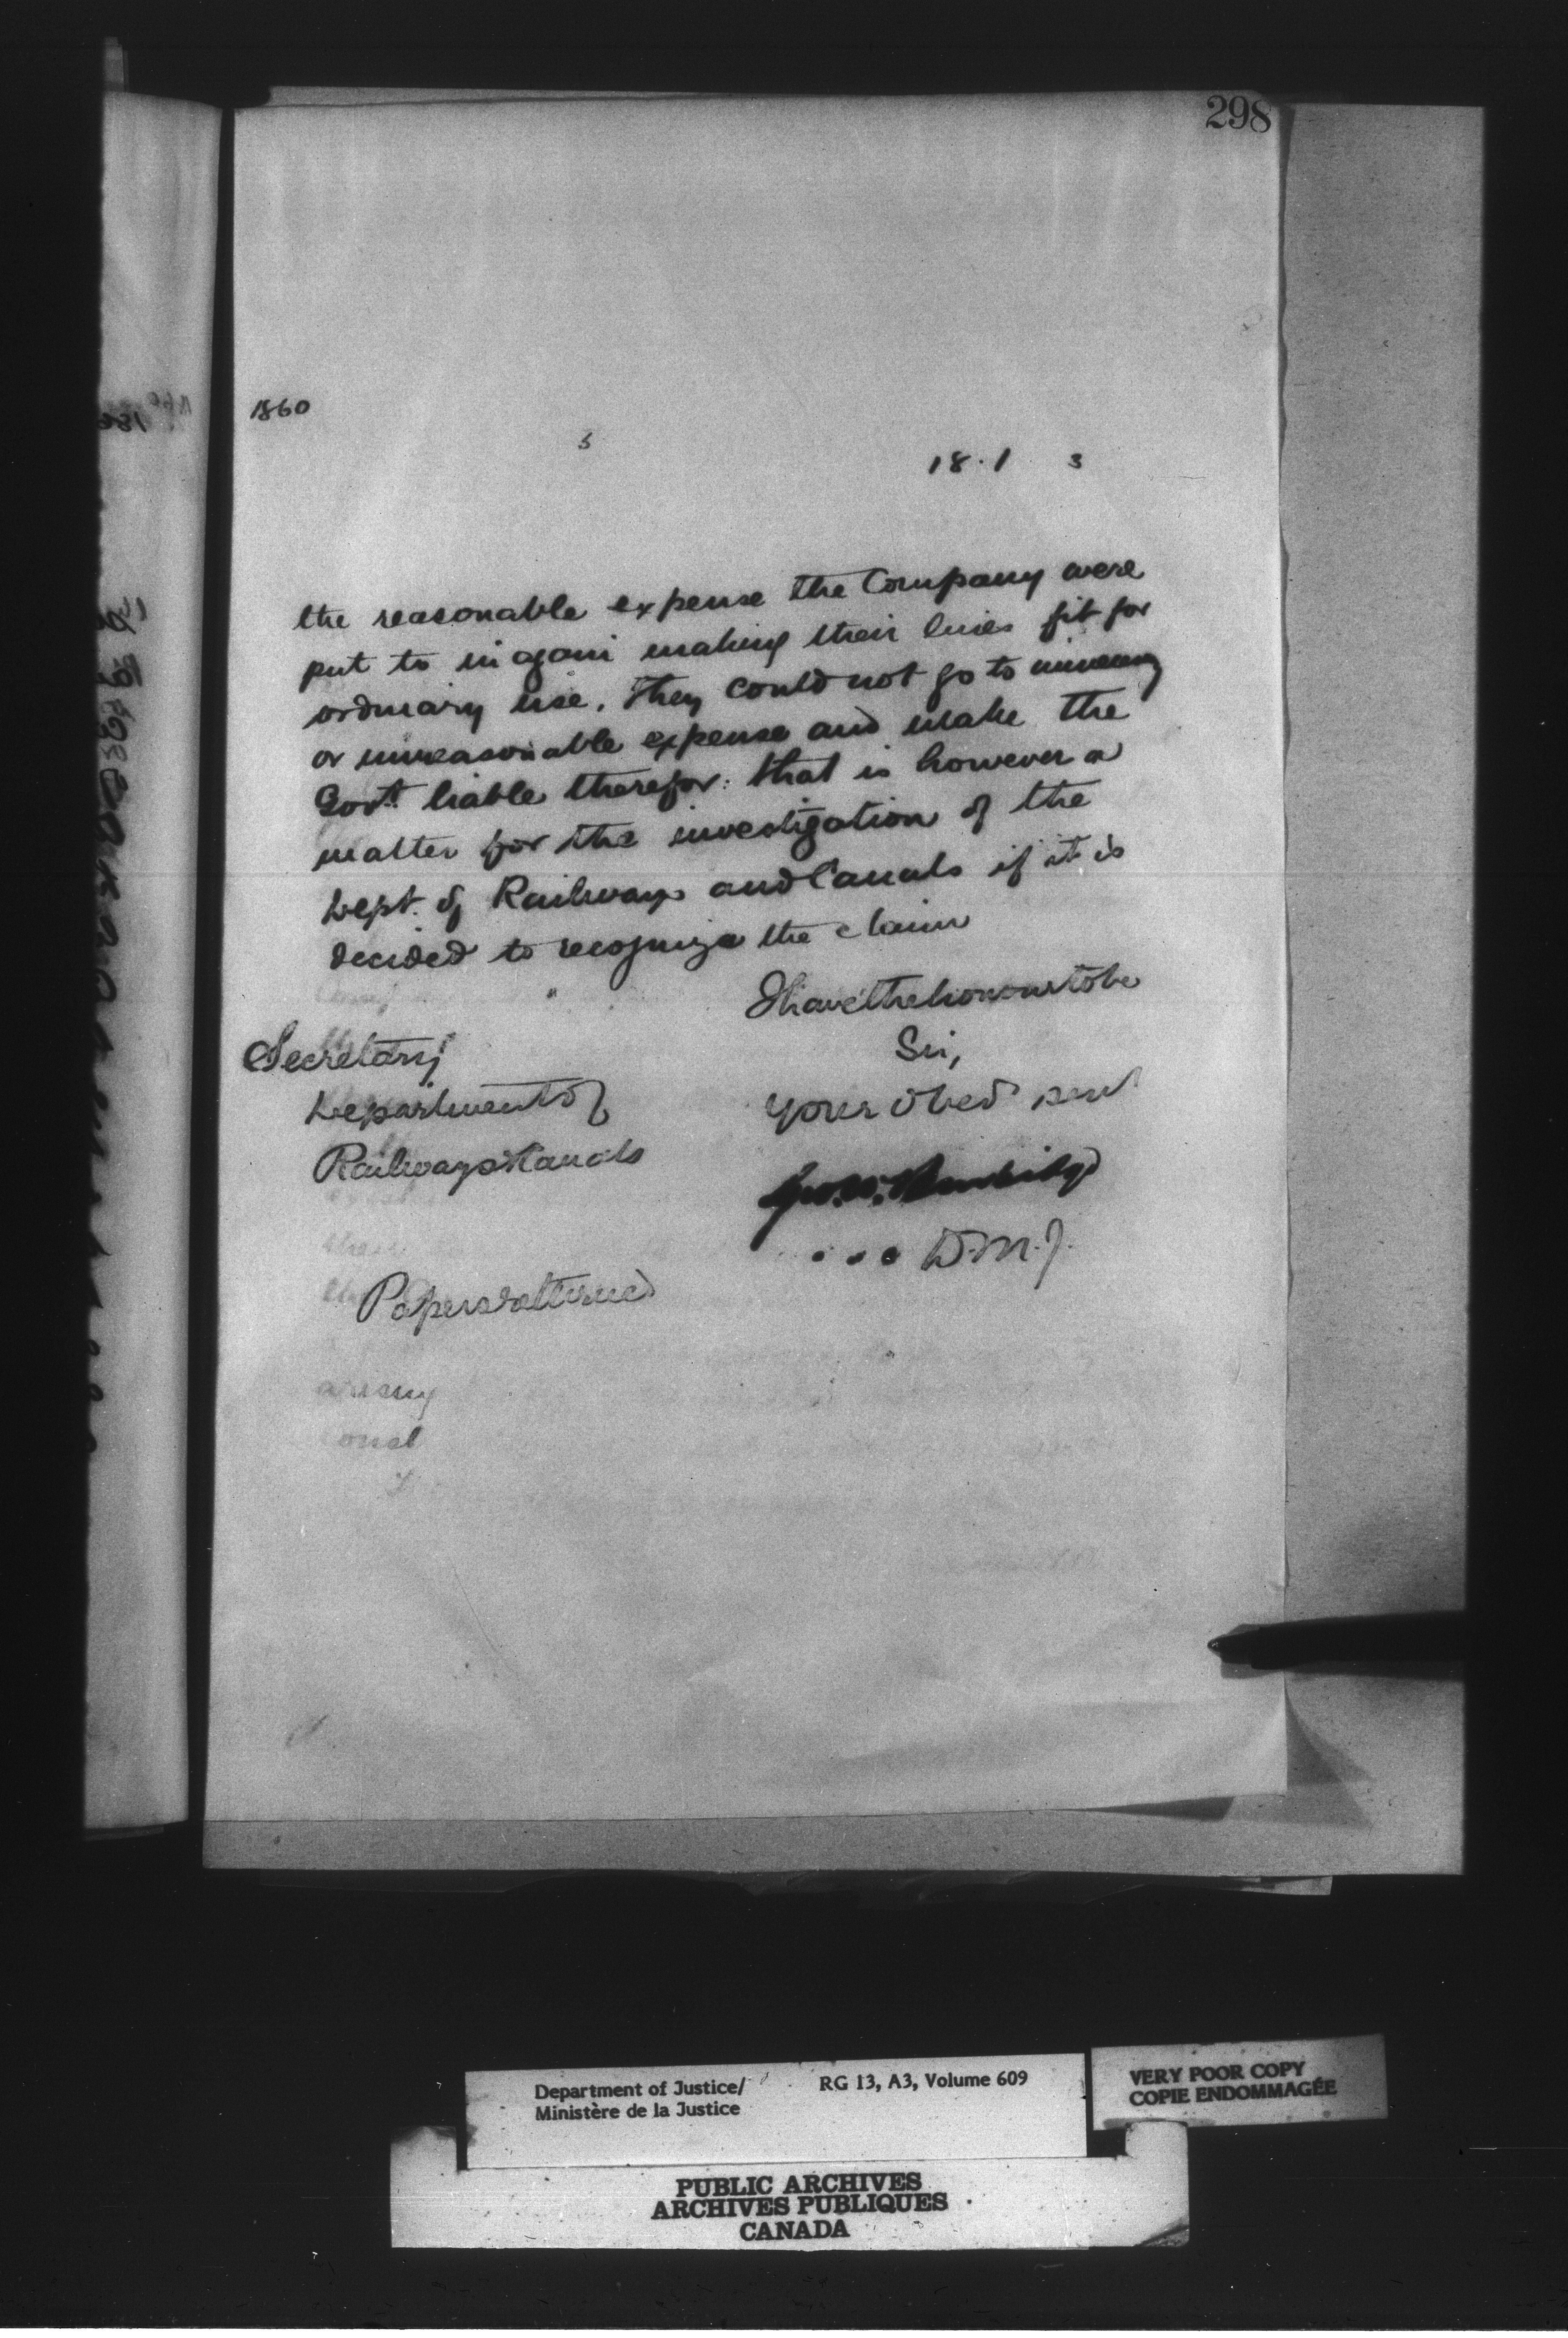 298
1860
5
18·1 3
the reasonable expense the Company were
put to in again making their lines fit for
ordinary use. They could not go to
or unreasonable expense and make the
Govt. liable therefor: that is however a
matter for the investigation of the
Dept. of Railways and Canals if it is
decided to recognize the claim
I have the honour to be
Sir,
Your obed servt
Geo. W. Burbidge
D.M.J.
Secretary
Department of
Railways & Canals
Papers returned
Department of Justice/
Ministère de la Justice
RG 13, A3, Volume 609
VERY POOR COPY
COPIE ENDOMMAGÉE
PUBLIC ARCHIVES
ARCHIVES PUBLIQUES
CANADA